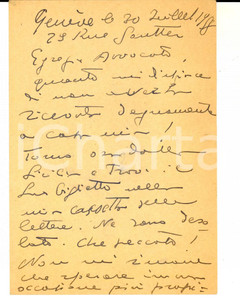 Genève le 20 Juillet
29 Rue Gautier
Egregio Avvocato,
quanto mi dispiace
di non averla
ricevuto degnamente
a casa mia!
Torno ora dalla
Sicilia e trovo il
suo biglietto nella
mia cassetta delle
lettere. Ne sono deso
lato. Che peccato!
Non mi rimane
che sperare in un
occasione più propi-